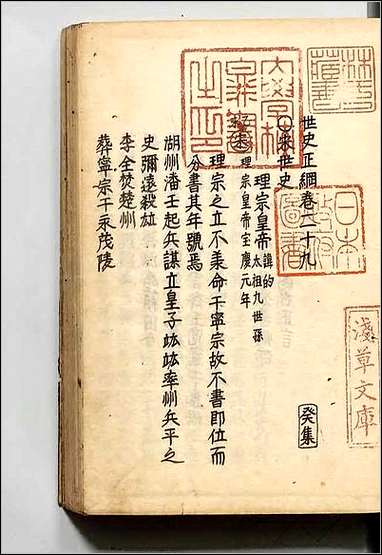 世史正綱卷二十九
癸集
○宋世史
理宗皇帝 諱昀
太祖九世孫
理宗皇帝宝慶元年
理宗之立不禀命于寧宗故不書即位而
分書其年號焉
湖州潘壬起兵謀立皇子竑竑率州兵平之
史彌遠殺竑
李全焚楚州
葬寧宗于永茂陵
淺草文庫
日本
圖書
林氏
藏書